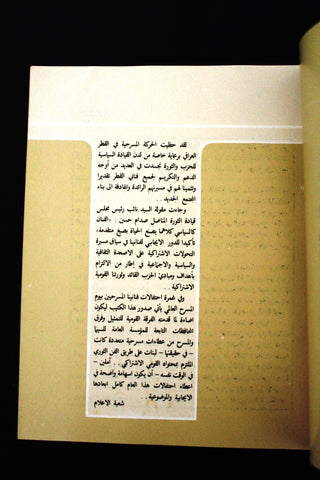 لقد حظيت الحركة المسرحية في القطر
العراقي برعاية خاصة من لدن القيادة السياسية
للحزب والثورة تجسدت في العديد من أوجه
الدعم والتكريم لجميع فناني القطر تقديرا
وتثمينا لهم في مسيرتهم الرائدة والهادفة الى بناء
المجتمع الجديد . .
وجاءت مقولة السيد نائب رئيس مجلس
قيادة الثورة المناضل صدام حسين : « الفنان
كالسياسي كلاهما يصنع الحياة بصيغ متقدمة »
تأكيدا للدور الايجابي لفنانينا في سياق مسيرة
التحولات الاشتراكية على الاصعدة الثقافية
والسياسية والاجتماعية في إطار من الالتزام
بأهداف ومبادئ الحزب القائد وثورتنا القومية
الاشتراكية . .
وفي غمرة احتفالات فنانينا المسرحيين بيوم
المسرح العالمي يأتي صدور هذا الكتيب ليكون
اضاءة لما قدمته الفرقة القومية للتمثيل وفرق
المحافظات التابعة للمؤسسة العامة للسينما
والمسرح من عطاءات مسرحية متعددة كانت
– في حقيقتها – لبنات على طريق الفن الثوري
الملتزم بمحتواه القومي الاشتراكي . . آملين –
في الوقت نفسه – أن يكون اسهامة واضحة في
اعطاء احتفالات هذا العام كامل ابعادها
الايجابية والموضوعية . .
شعبة الاعلام